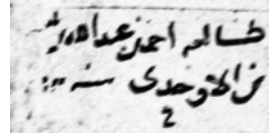 طالعه احمد بن عبدالله
بن الاوحدى سنة